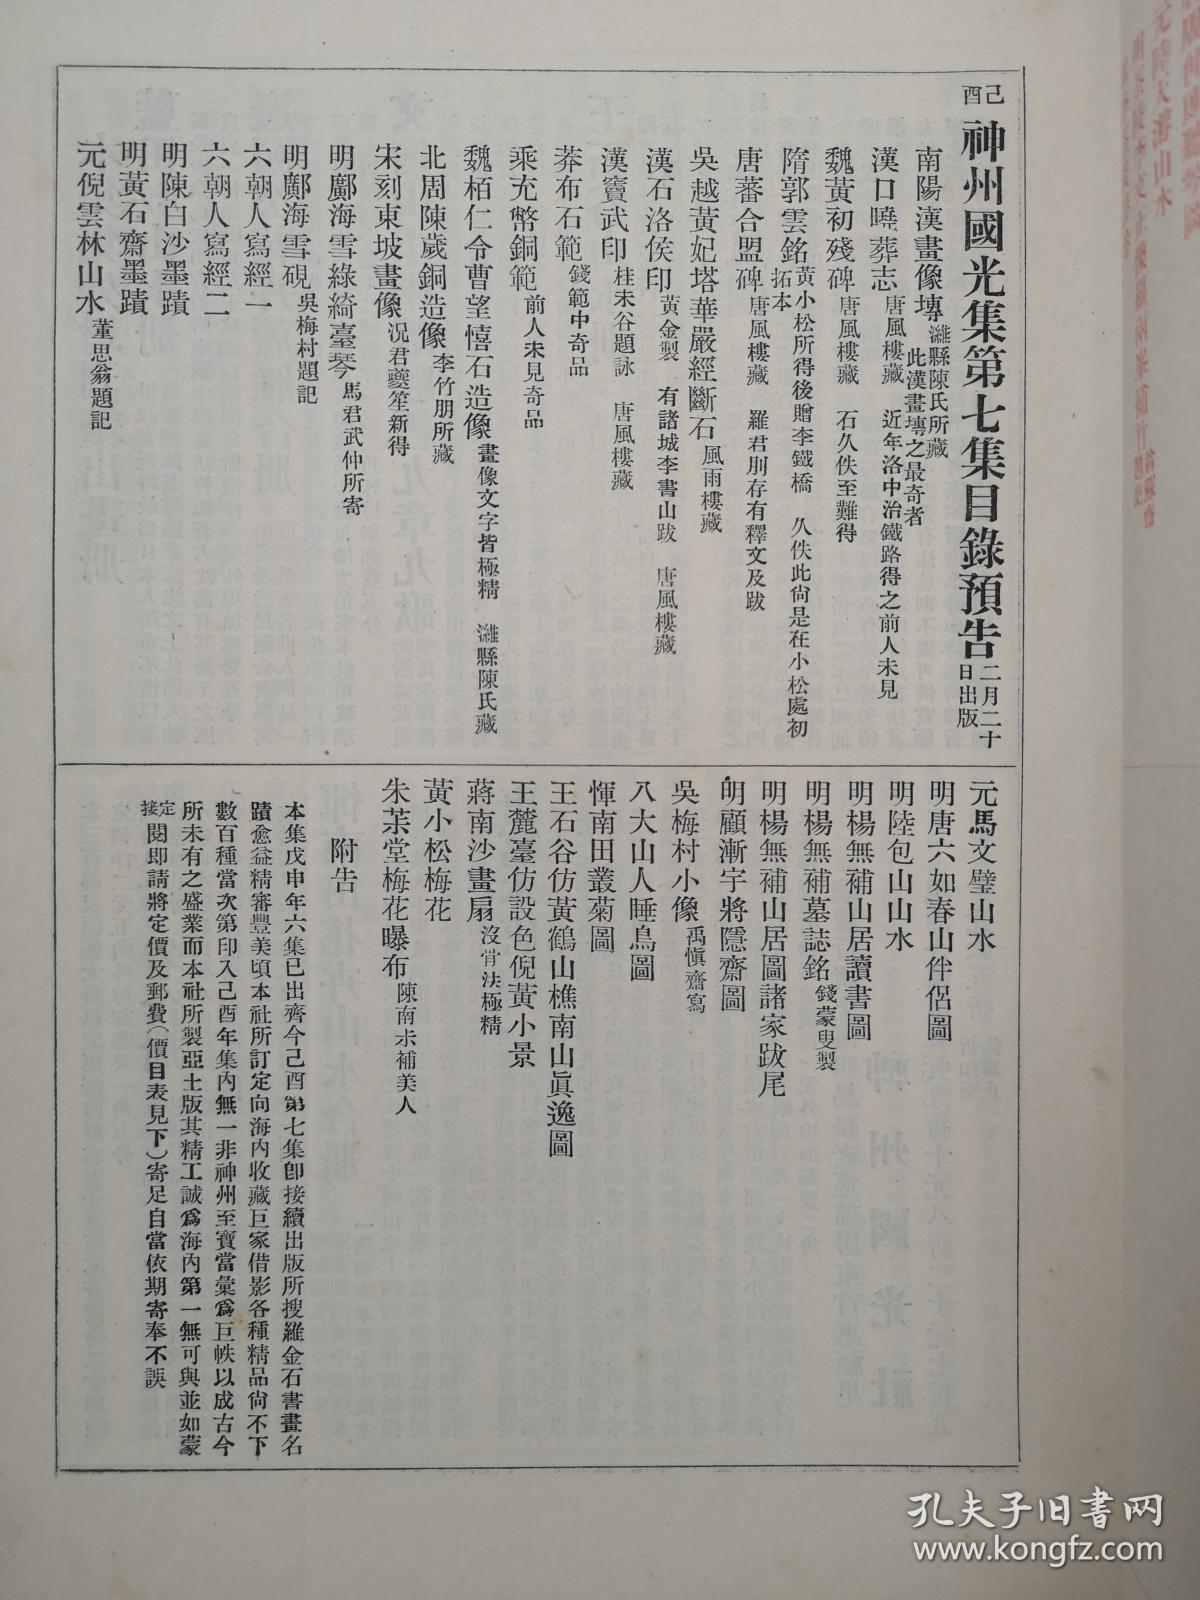 己酉 神州國光集第七集目錄預告 二月二十日出版
南陽漢畫像塼 濰縣陳氏所藏 此漢畫塼之最奇者
漢口曉葬志 唐風樓藏 近年洛中治鐵路得之前人未見
魏黃初殘碑 唐風樓藏 石久佚至難得
隋郭雲銘 黃小松所得後贈李鐵橋 久佚此尙是在小松處初拓本
唐蕃合盟碑 唐風樓藏 羅君刖存有釋文及跋
吳越黃妃塔華嚴經斷石 風雨樓藏
漢石洛侯印 黃金製 有諸城李書山跋 唐風樓藏
漢竇武印 桂未谷題詠 唐風樓藏
莽布石範 錢範中奇品
乘充幣銅範 前人未見奇品
魏栢仁令曹望憘石造像 畫像文字皆極精 濰縣陳氏藏
北周陳歲銅造像 李竹朋所藏
宋刻東坡畫像 況君夔笙新得
明鄺海雪綠綺臺琴 馬君武仲所寄
明鄺海雪硯 吳梅村題記
六朝人寫經一
六朝人寫經二
明陳白沙墨蹟
明黃石齋墨蹟
元倪雲林山水 董思翁題記
元馬文璧山水
明唐六如春山伴侶圖
明陸包山山水
明楊無補山居讀書圖
明楊無補墓誌銘 錢蒙叟製
明楊無補山居圖諸家跋尾
明顧漸宇將隱齋圖
吳梅村小像 禹愼齋寫
八大山人睡鳥圖
惲南田叢菊圖
王石谷仿黃鶴山樵南山眞逸圖
王麓臺仿設色倪黃小景
蔣南沙畫扇 沒骨法極精
黃小松梅花
朱茮堂梅花曝布 陳南未補美人
附告
本集戊申年六集已出齊今己酉第七集卽接續出版所搜羅金石書畫名
蹟愈益精審豐美頃本社所訂定向海內收藏巨家借影各種精品尙不下
數百種當次第印入己酉年集內無一非神州至寶當彙爲巨帙以成古今
所未有之盛業而本社所製亞土版其精工誠爲海內第一無可與並如蒙
定接閱即請將定價及郵費(價目表見下)寄足自當依期寄奉不誤
孔夫子旧书网
www.kongfz.com